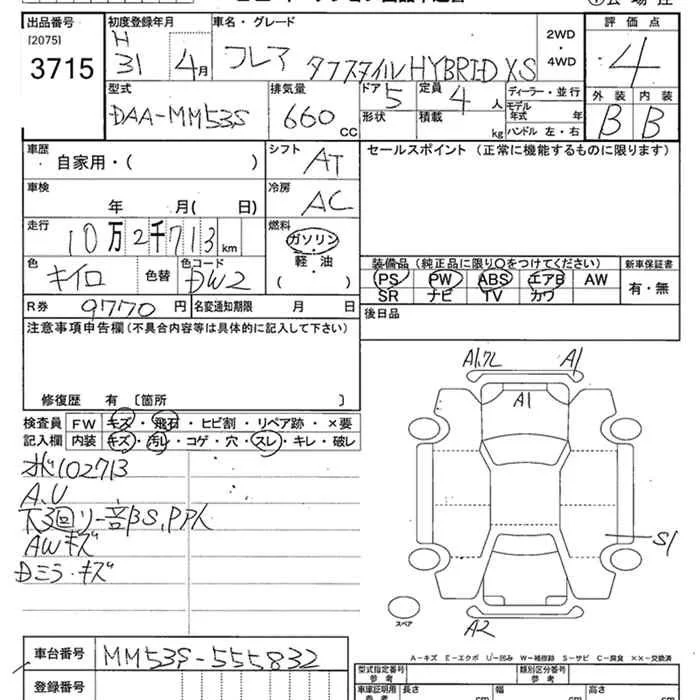 出品番号 初度登録年月 車名・グレード 評価点
[2075]
3715 H 31 4月 フレア タフスタイル HYBRID XS 2WD・4WD 4
型式 排気量 ドア 定員 ディーラー・並行 外装 内装
DAA-MM53S 660 CC 5 4人 モデル年式 年 B B
形状 積載 kg ハンドル 左・右
車歴 シフト セールスポイント (正常に機能するものに限ります)
自家用・( ) AT
車検 冷房
年 月( 日) AC
走行 燃料
10万2千713km ガソリン
軽・油
( )
色 色コード 装備品 (純正品に限り○をつけてください) 新車保証書
キイロ 色替 DW2 PS PW ABS エアB AW 有・無
SR ナビ TV カワ
R券 9770円 名変通知期限 月 日 後日品
注意事項申告欄(不具合内容等は具体的に記入して下さい)
修復歴 有 〔箇所 〕
A1.7L A1
A1
検査員 FW キズ・飛石・ヒビ割・リペア跡・×要
記入欄 内装 キズ・汚レ・コゲ・穴・スレ・キレ・破レ
102713
A.U
AWキズ
Dミラ・キズ
S1
スペア
A2
車台番号 MM53S-555832
A-キズ E-エクボ U-凹み W-補修跡 S-サビ C-腐食 ××-交換済
登録番号
型式指定番号 参考 類別区分番号 参考
車庫証明用 参考 長さ cm 幅 cm 高さ cm